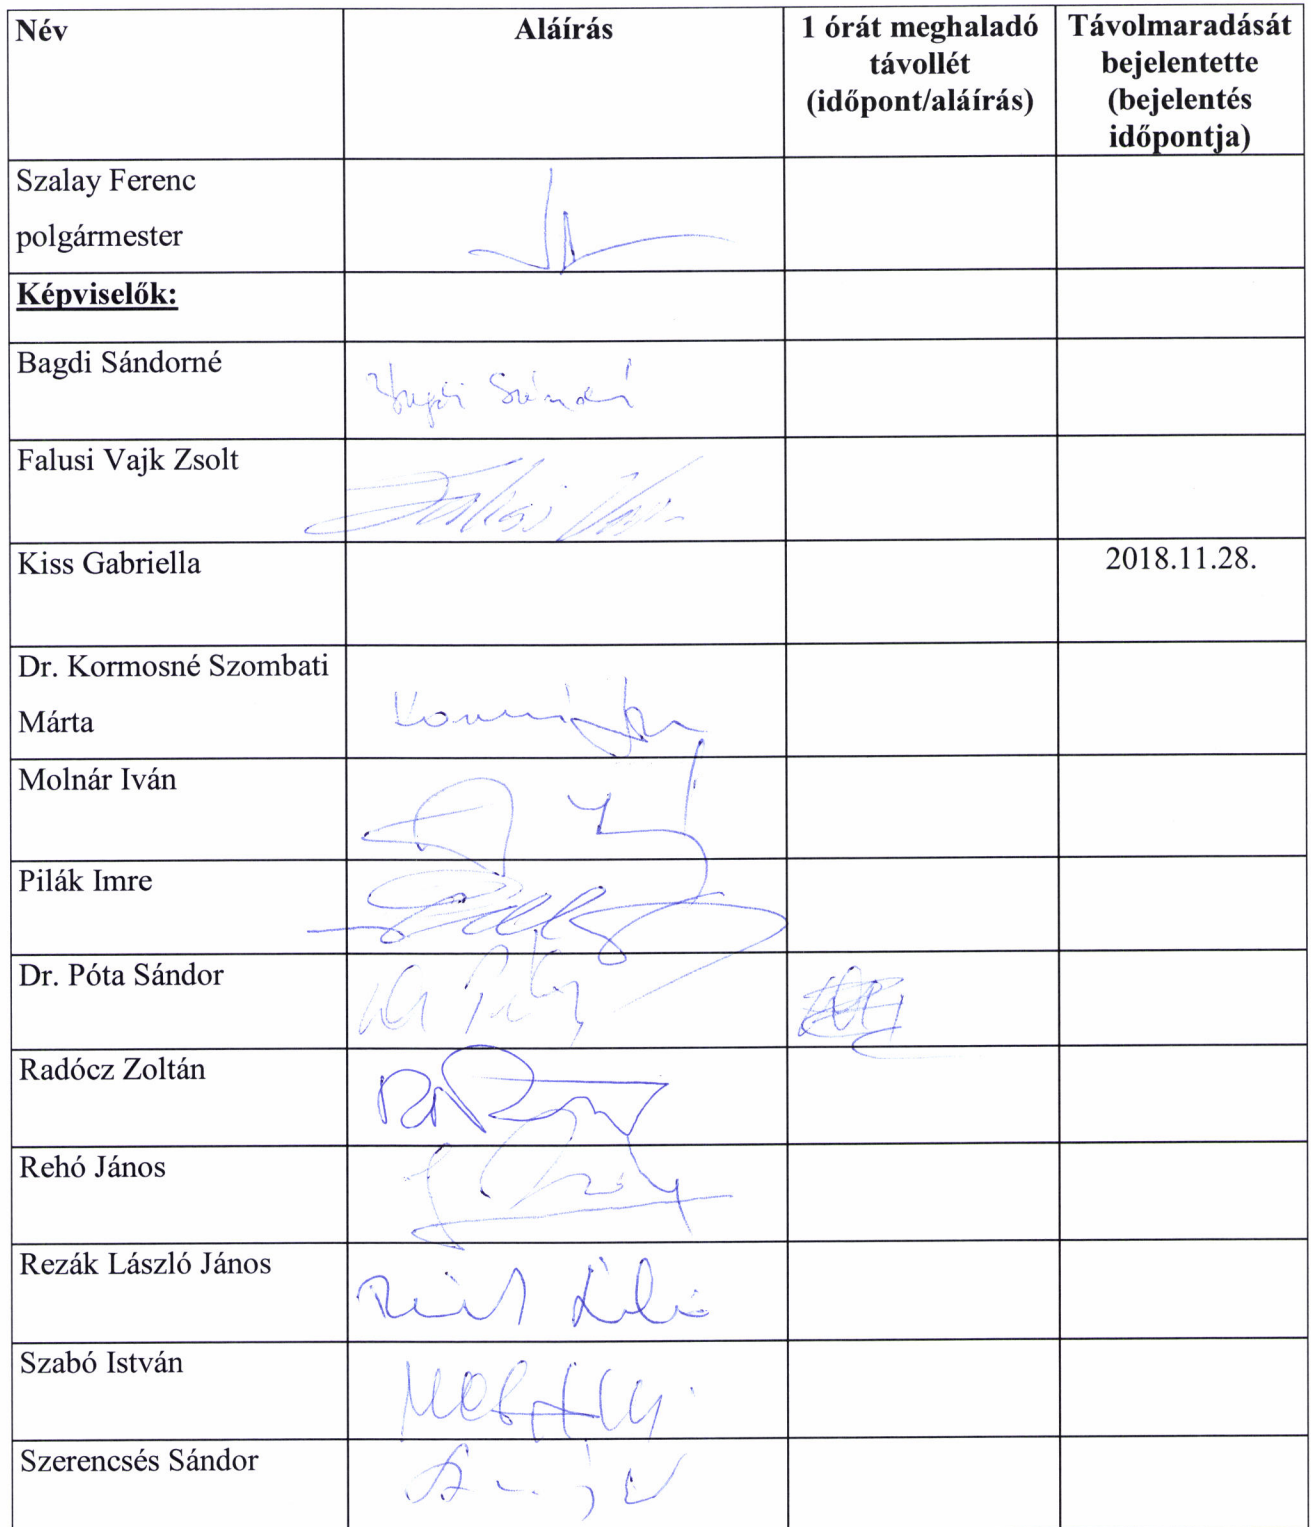 Név
Aláírás
1 órát meghaladó
távollét
(időpont/aláírás)
Távolmaradását
bejelentette
(bejelentés
időpontja)
Szalay Ferenc
polgármester
Képviselők:
Bagdi Sándorné
Falusi Vajk Zsolt
Kiss Gabriella
2018.11.28.
Dr. Kormosné Szombati
Márta
Molnár Iván
Pilák Imre
Dr. Póta Sándor
Radócz Zoltán
Rehó János
Rezák László János
Szabó István
Szerencsés Sándor